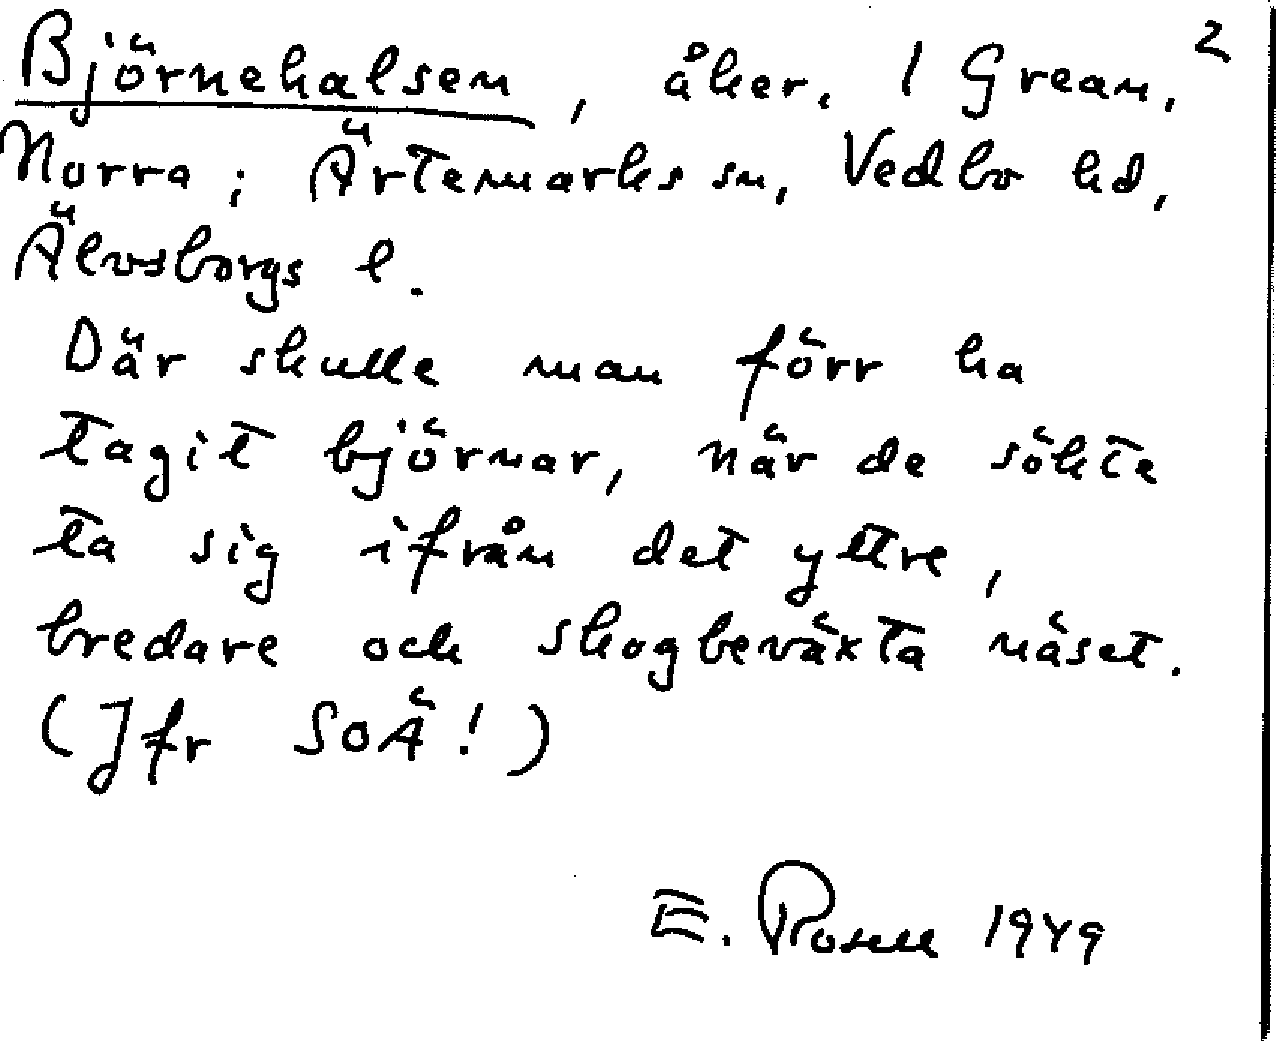 2
Björnehalsen, åker. 1 Grean,
Norra; Ärtemarks sn, Vedbo hd,
Älvsborgs l.
Där skulle man förr ha
tagit björnar, när de sökte
ta sig ifrån det yttre,
bredare och skogbeväxta näset.
(Jfr SOÄ!)
E. Rosell 1949